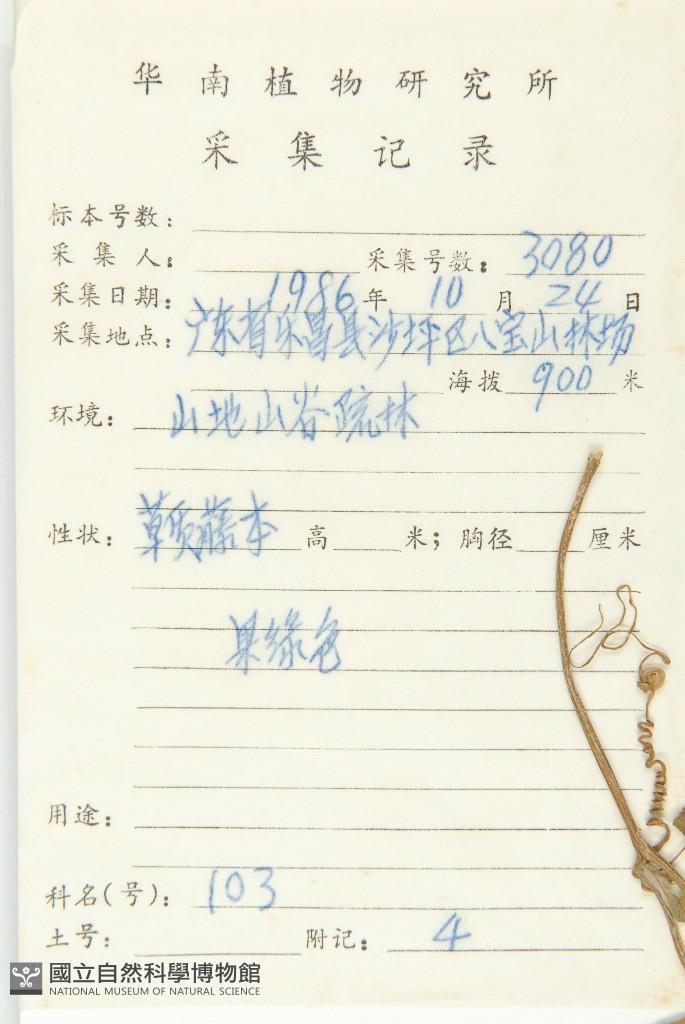 华南植物研究所
采集记录
标本号数：
采集人： 采集号数：3080
采集日期：1986年10月24日
采集地点：广东省乐昌县沙坪区八宝山林场
海拨 900 米
环境：山地山谷疏林
性状：草质藤本 高 米；胸径 厘米
果绿色
用途：
科名(号)：103
土号： 附记：4
國立自然科學博物館
NATIONAL MUSEUM OF NATURAL SCIENCE